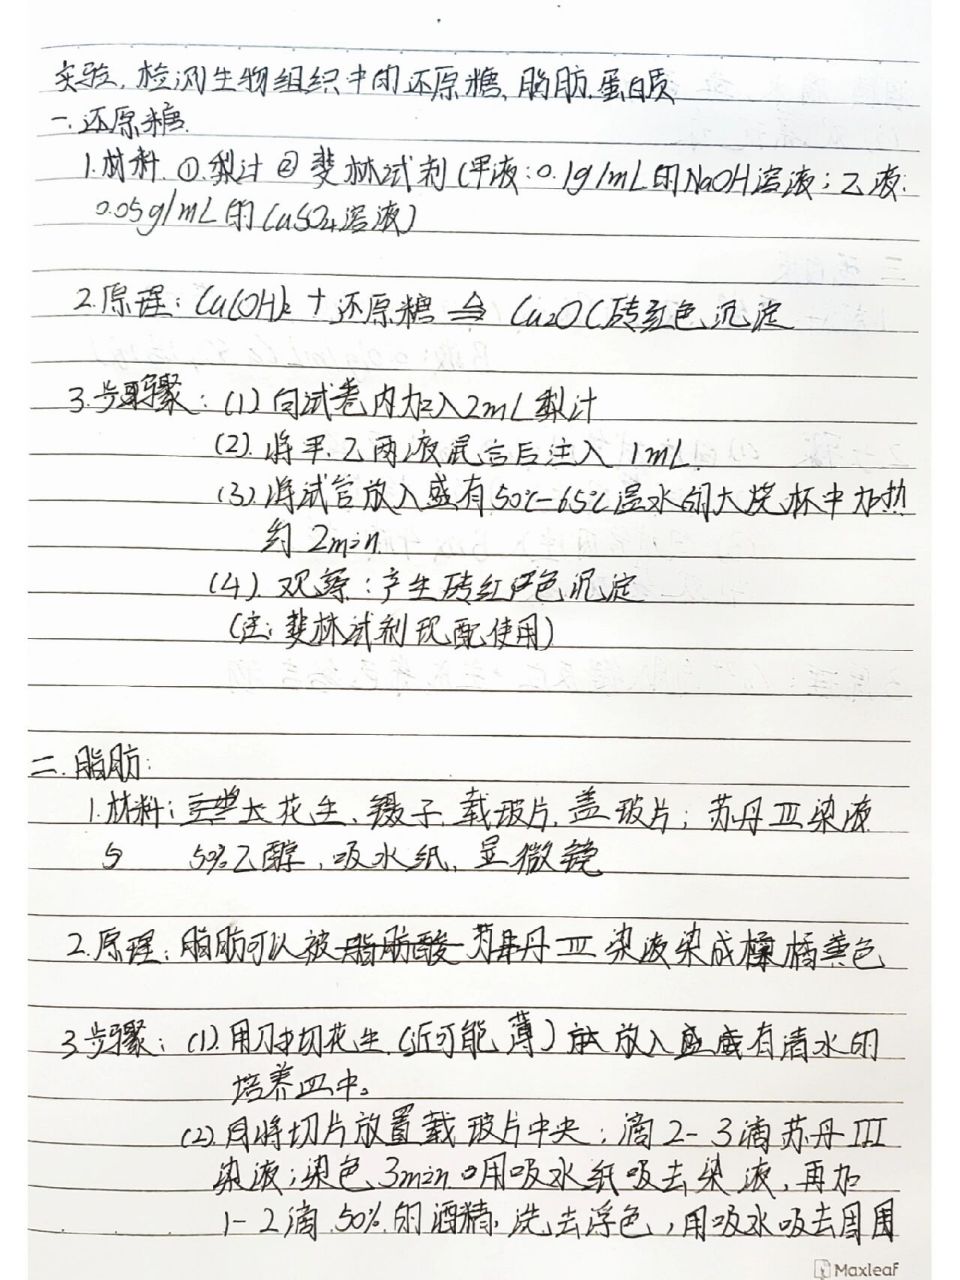 实验.检测生物组织中的还原糖、脂肪.蛋白质
一.还原糖.
1.材料.①.梨汁②斐林试剂(甲液:0.1g/mL的NaOH溶液;乙液:
0.05g/mL的CuSO4溶液)
2.原理:Cu(OH)2+还原糖 Cu2O(砖红色沉淀
3.步骤:(1)向试 内加入2mL梨汁
(2).将甲.乙两液混合后注入1mL.
(3).将试管放入盛有50℃-65℃温水的大烧杯中加热
约2min.
(4).观察:产生砖红色沉淀
(注:斐林试剂现配使用)
二.脂肪:
1.材料: 花生、镊子.载玻片.盖玻片;苏丹Ⅲ染液
50%乙醇,吸水纸、显微镜
2.原理:脂肪可以被脂肪酸苏丹Ⅲ染液染成橘黄色
3.步骤:(1).用刀切花生.(近可能薄)放入盛有清水的
培养皿中。
(2).将切片放置载玻片中央;滴2-3滴苏丹III
染液;染色3min。用吸水纸吸去染液,再加
1-2滴50%的酒精.洗去浮色,用吸水吸去周围
Maxleaf